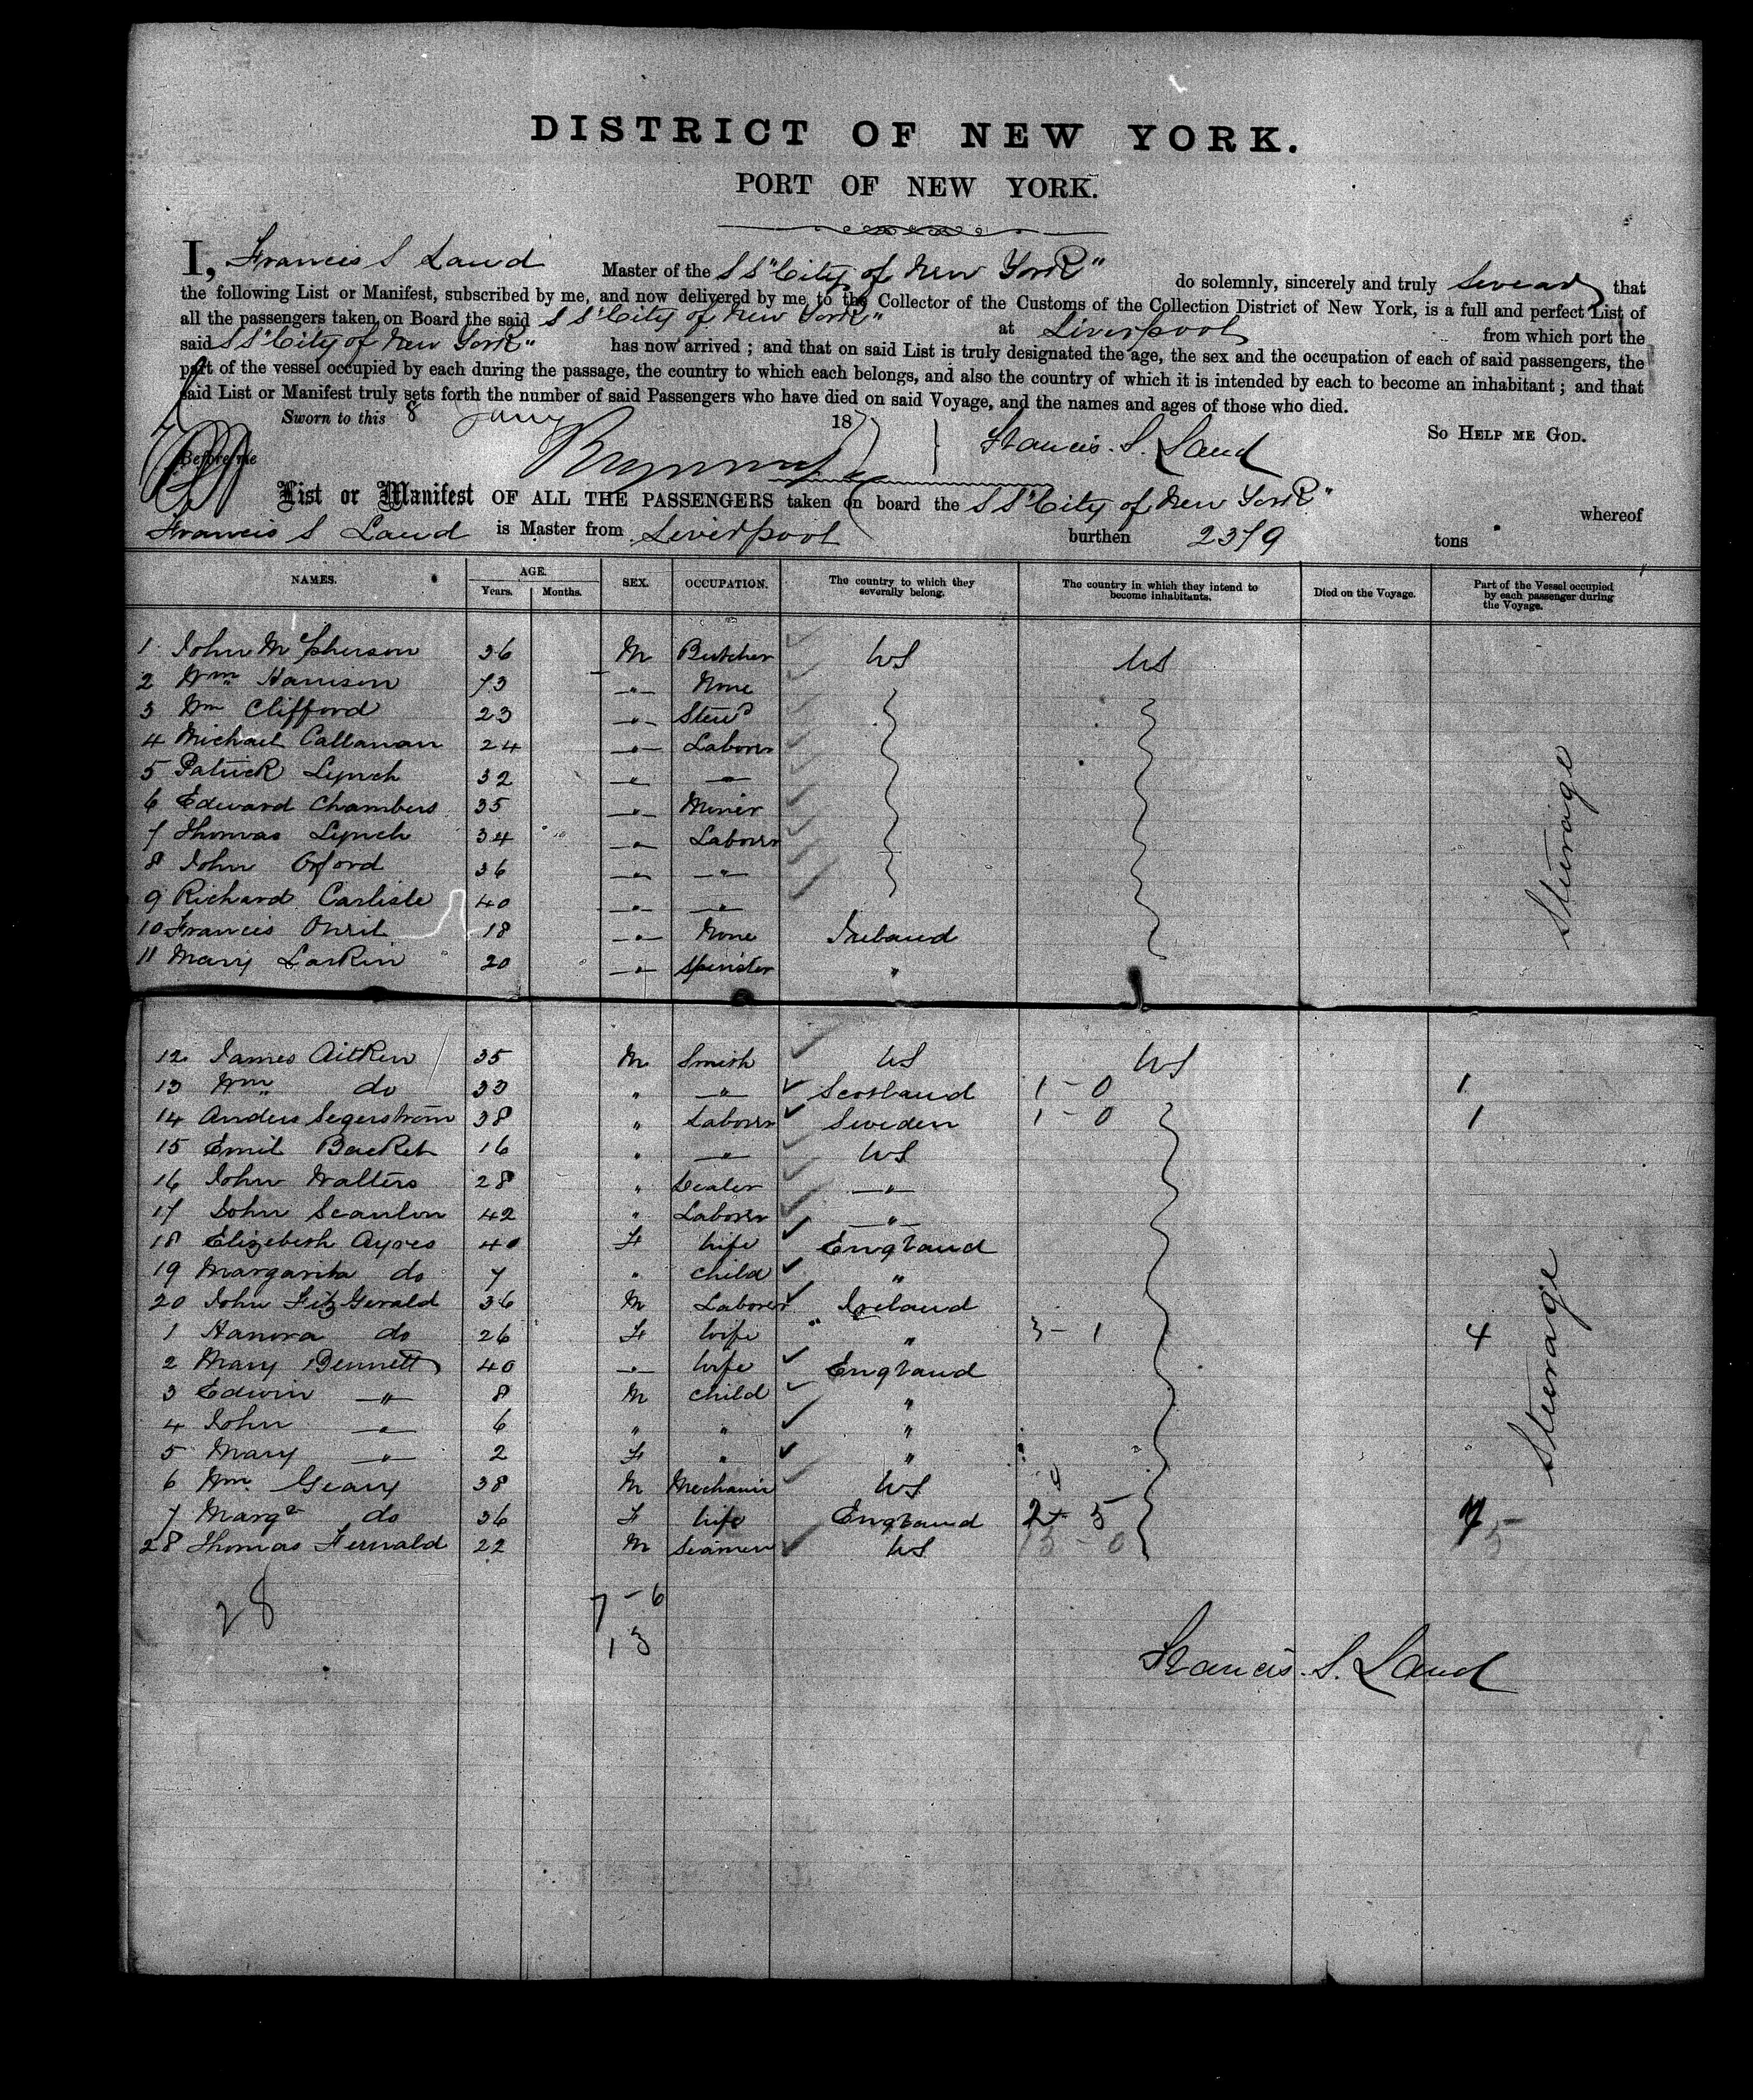 DISTRICT OF NEW YORK.
PORT OF NEW YORK.
I, Francis S Land Master of the SS "City of New York" do solemnly, sincerely and truly swear that
the following List or Manifest, subscribed by me, and now delivered by me to the Collector of the Customs of the Collection District of New York, is a full and perfect List of
all the passengers taken on Board the said SS "City of New York" at Liverpool from which port the
said SS "City of New York" has now arrived; and that on said List is truly designated the age, the sex and the occupation of each of said passengers, the
part of the vessel occupied by each during the passage, the country to which each belongs, and also the country of which it is intended by each to become an inhabitant; and that
said List or Manifest truly sets forth the number of said Passengers who have died on said Voyage, and the names and ages of those who died.
Sworn to this 8 Jany 187 So Help me God.
Before me Francis. S. Land
List or Manifest OF ALL THE PASSENGERS taken on board the SS "City of New York" whereof
Francis S Land is Master from Liverpool burthen 2379 tons
NAMES. AGE. Years. Months. SEX. OCCUPATION. The country to which they severally belong. The country in which they intend to become inhabitants. Died on the Voyage. Part of the Vessel occupied by each passenger during the Voyage.
1 John McPherson 36 M Butcher US US
2 Wm Harrison 73 " None
3 Wm Clifford 23 " Stewd
4 Michael Callanan 24 " Laborer
5 Patrick Lynch 32 " "
6 Edward Chambers 35 " Miner
7 Thomas Lynch 34 " Laborer
8 John Oxford 36 " "
9 Richard Carlisle 40 " "
10 Francis Onril 18 " None Ireland
11 Mary Larkin 20 " Spinster "
Steerage
12 James Aitken 35 M Smith US US
13 Wm do 33 " " Scotland 1 - 0 1
14 Anders Segerström 38 " Laborer Sweden 1 - 0 1
15 Emil Backet 16 " " US
16 John Walters 28 " Dealer "
17 John Scanlon 42 " Laborer "
18 Elizebeth Ayres 40 F Wife England
19 Margarita do 7 " Child "
20 John FitzGerald 36 M Laborer Ireland
1 Hanora do 26 F Wife " 3 - 1 4
2 Mary Bennett 40 " Wife England
3 Edwin " 8 M Child "
4 John " 6 " " "
5 Mary " 2 F " "
6 Wm. Geary 38 M Mechanic US
7 Margt do 36 F Wife England 2 - 5 7
28 Thomas Fernald 22 M Seaman US
Steerage
28
7 - 6
13
Francis. S. Land